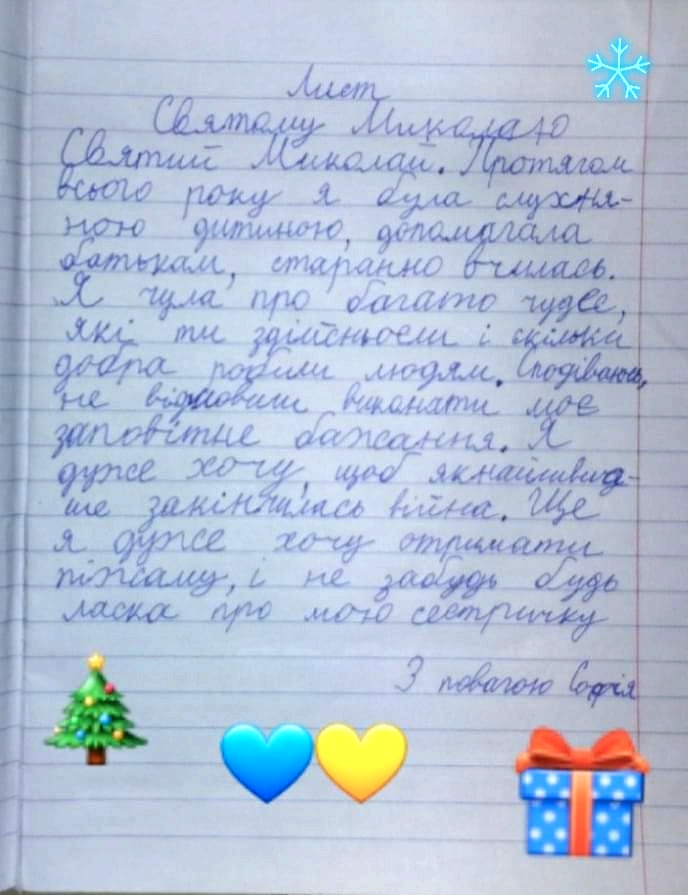 Лист
Святому Миколаю
Святий Миколай. Протягом
всього року я була слухня-
ною дитиною, допомагала
батькам, старанно вчилась.
Я чула про багато чудес,
які ти здійснюєш і скільки
добра робиш людям. Сподіваюсь,
не відмовиш виконати моє
заповітне бажання. Я
дуже хочу, щоб якнайшвид-
ше закінчилась війна. Ще
я дуже хочу отримати
піжаму, і не забудь будь
ласка про мою сестричку
З повагою Софія